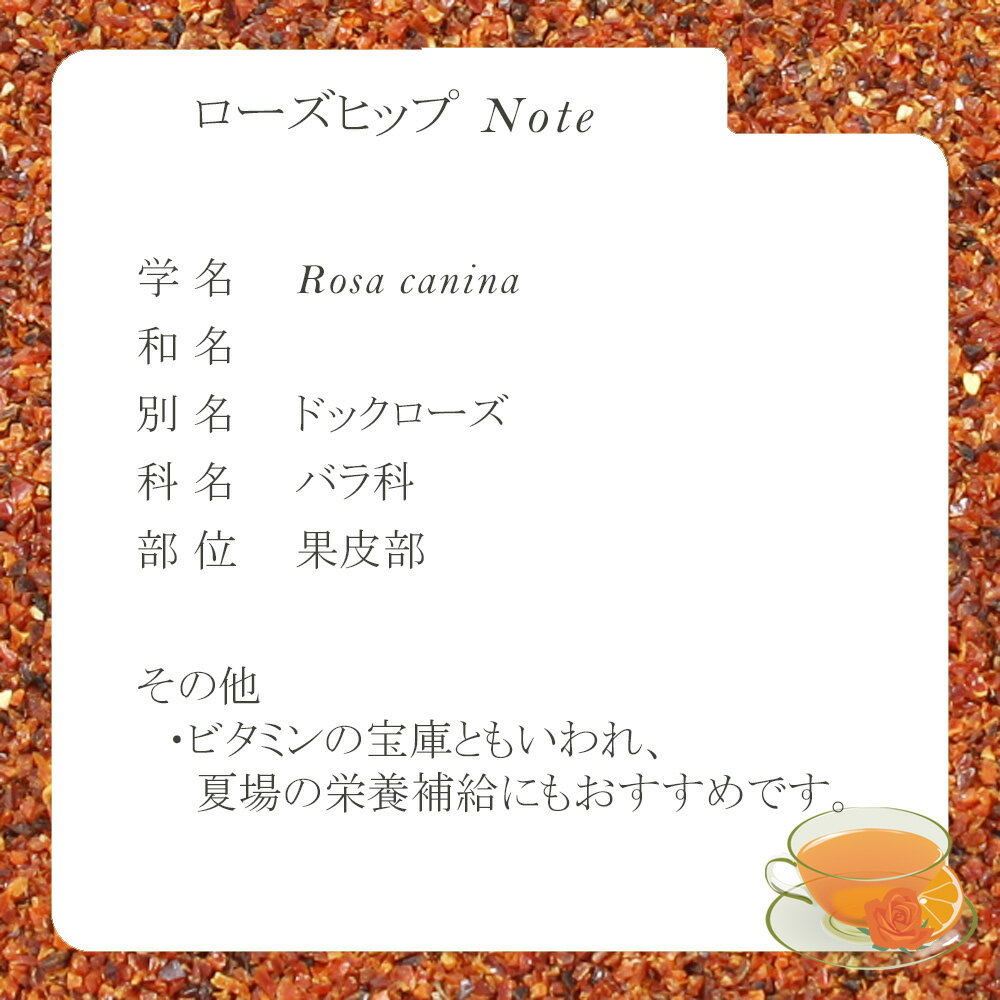 ローズヒップ Note
学名 Rosa canina
和名
別名 ドックローズ
科名 バラ科
部位 果皮部
その他
・ビタミンの宝庫ともいわれ、
夏場の栄養補給にもおすすめです。